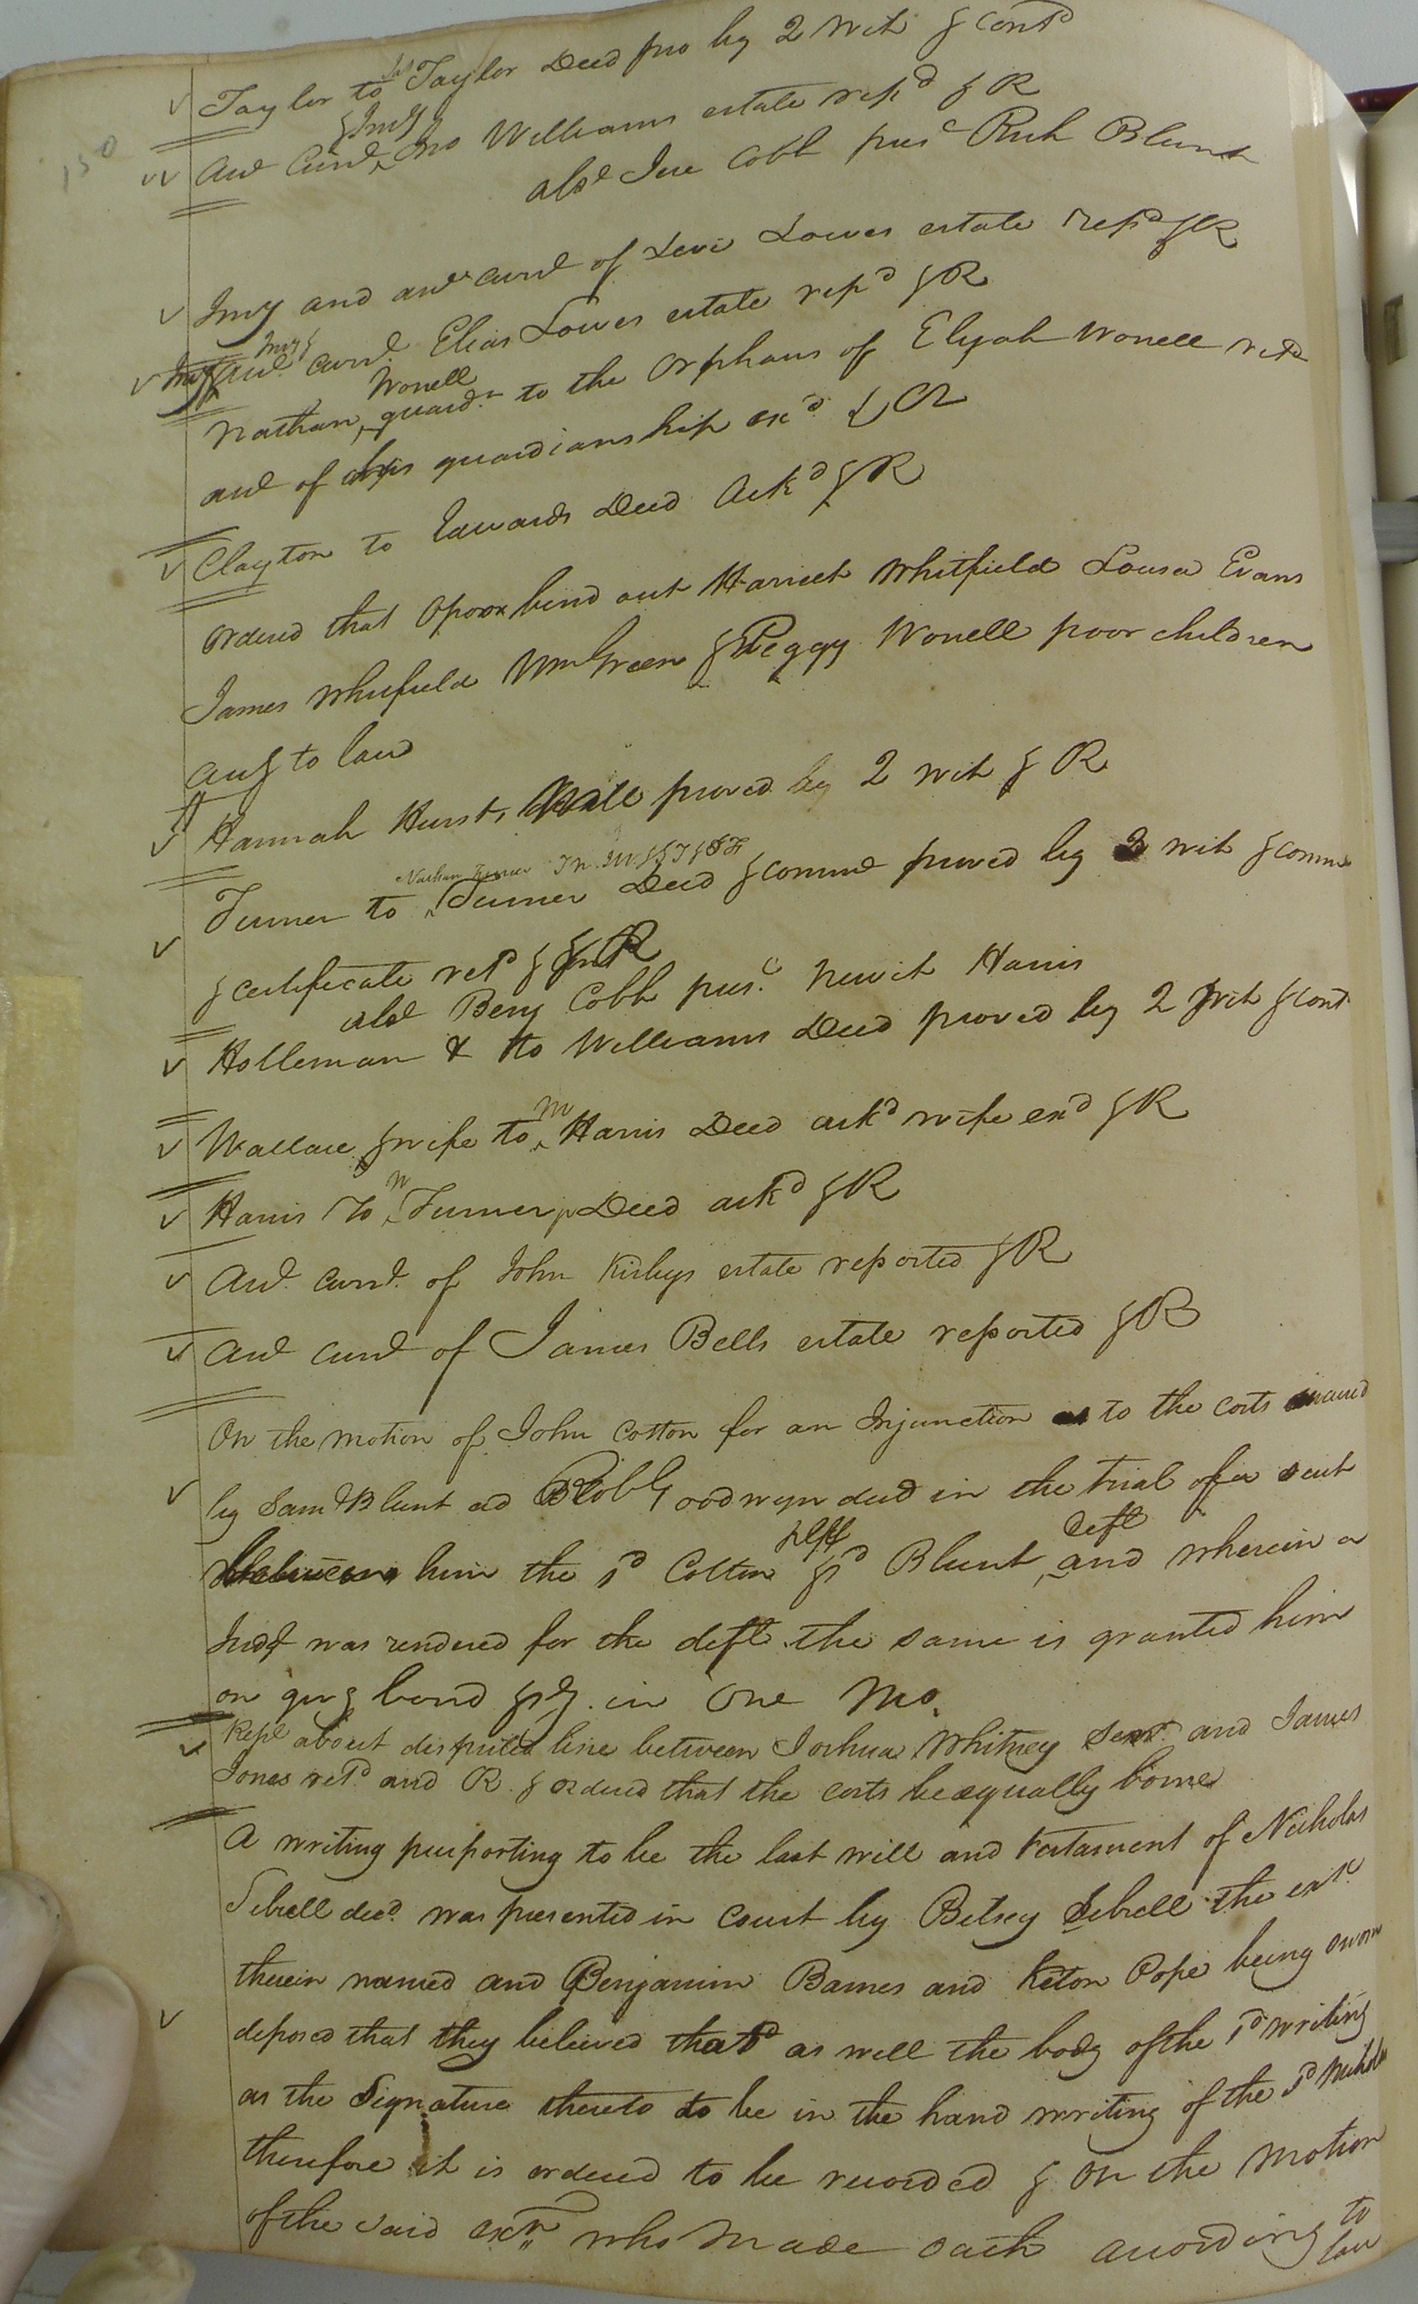 150
Taylor to Jas Taylor Deed pro by 2 wit & cont'd
Acct Curr't & Invy Jno Williams estate rep'd & R
abs't Jere Cobb pres't Rich Blunt
Invy and acct curr't of Levi Lowes estate rep'd & R
Invy & acct curr't Elias Lowes estate rep'd & R
Nathan Wonell guard'n to the orphans of Elijah Wonell ret'd
acct of his guardianship ex'd & OR
Clayton to Edwards Deed Ack'd & R
Ordered that Opoor bind out Harriet Whitfield Louisa Evans
James Whitfield Wm Green & Peggy Wonell poor children
acc'g to law
Hannah Hursts Will proved by 2 wit & R
Turner to Nathan Turner Deed & comm'n proved by 3 wit & comm'n
& certificate ret'd & R
abs't Benj Cobb pres't Newit Harris
Holleman to Williams Deed proved by 2 wit & cont
Wallace & wife to M Harris Deed ack'd wife ex'd & R
Harris To N Turner Deed ack'd & R
Acct. Curr't. of John Kirbys estate reported & R
Acct curr't of James Bells estate reported & R
On the motion of John Cotton for an Injunction as to the costs
by Sam'l Blunt ad Robb Goodwyn dec'd in the trial of a suit
between him the s'd Cotton plff & s'd Blunt deft and wherein a
Judg't was rendered for the deft. the same is granted him
on giv'g bond & s'y. in One Mo.
Rep't about disputed line between Joshua Whitney Sen'r and James
Jones ret'd and R. & ordered that the costs be equally borne
A writing purporting to be the last will and testament of Nicholas
Sebrell dec'd was presented in Court by Betsey Sebrell the ex'x
therein named and Benjamin Barnes and Keton Pope being sworn
deposed that they believed that as well the body of the s'd writing
as the Signature thereto to be in the hand writing of the s'd Nicholas
therefore it is ordered to be recorded & on the motion
of the said ex'x who made oath according to law